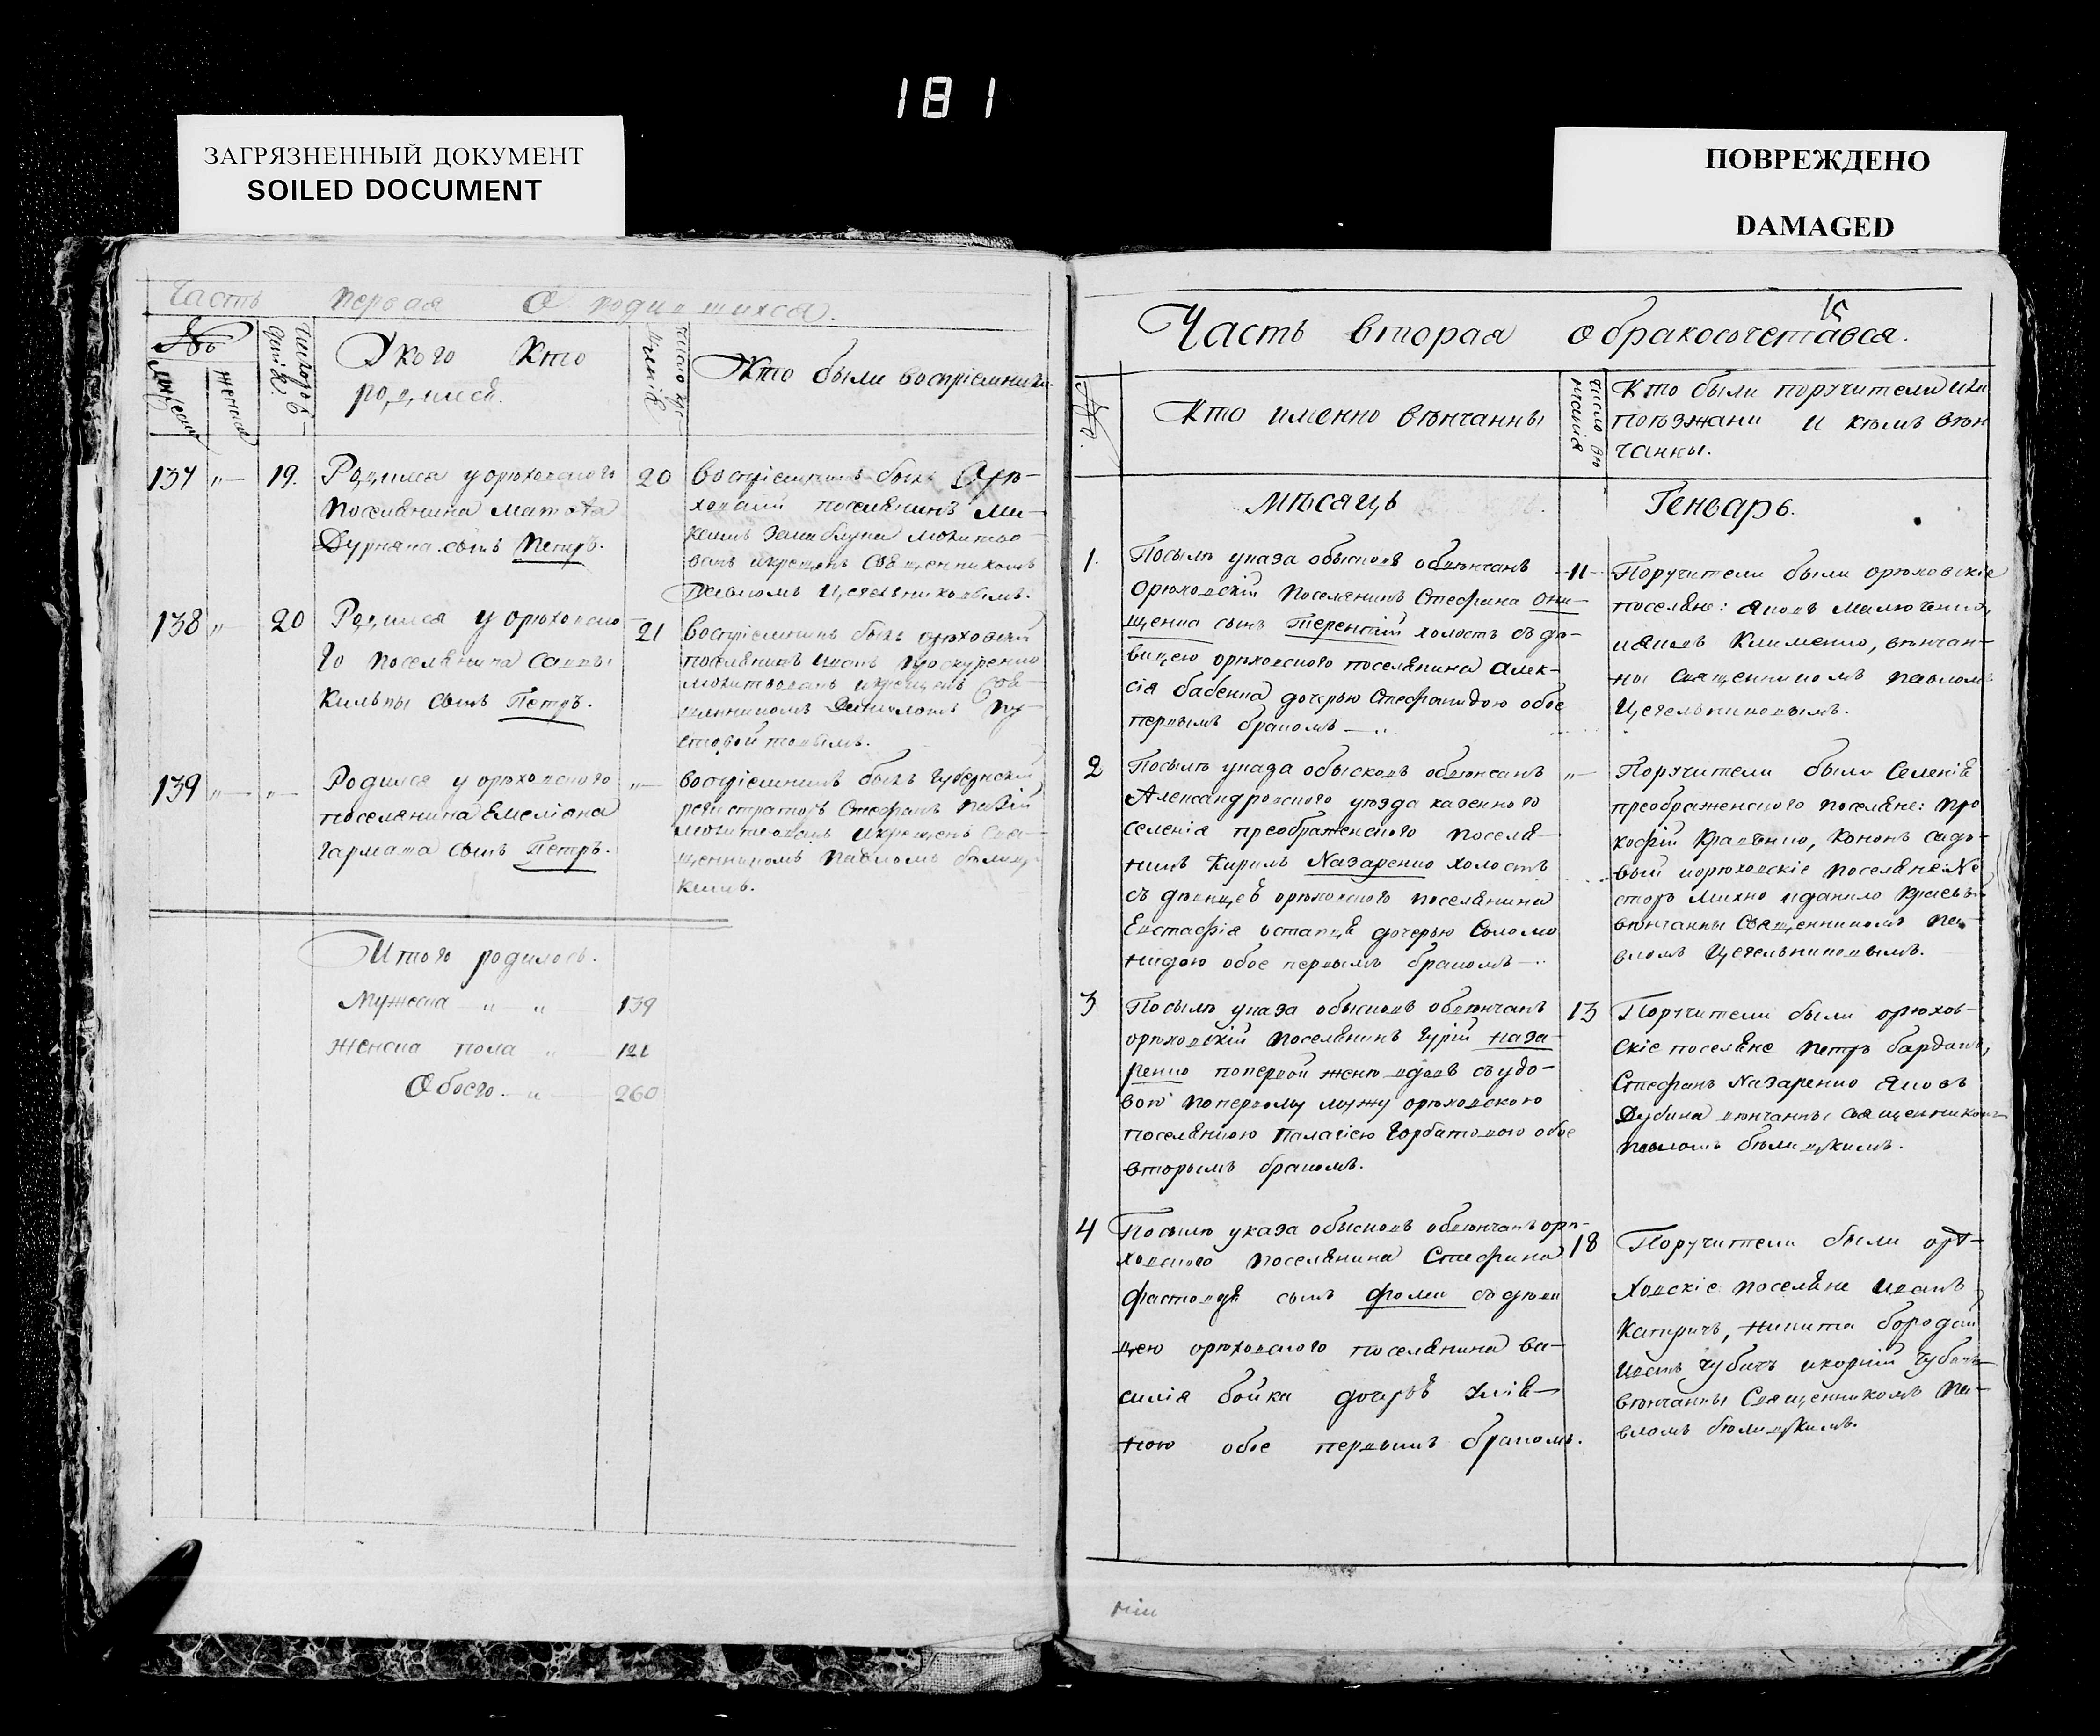 181
ЗАГРЯЗНЕННЫЙ ДОКУМЕНТ
SOILED DOCUMENT
ПОВРЕЖДЕНО
DAMAGED
Часть первая О родившихся.
№
мужеска
женска
Число рож-
денiя.
У кого кто
родился.
число кре-
щенiя
Кто были воспрiемники.
137 "— 19.
Родился у орѣховскаго
поселянина Матѳѣа
Дурняка сынъ Петръ.
20
воспрiемникъ былъ Орѣ-
ховскiй поселянинъ Ми-
молитво-
ванъ и крещенъ Священникомъ
Павломъ Цегельниковымъ.
138 "— 20
Родился у орѣховска-
го поселянина Саввы
Кильпы сынъ Петръ.
21
воспрiемникъ былъ орѣховскiй
поселянинъ Иванъ Проскуренко
молитвованъ и крещенъ Свя-
щенникомъ Данiиломъ Пу-
стовойтовымъ.
139 "— "—
Родился у орѣховскаго
поселянина Емелiана
Гармаша сынъ Петръ.
"—
воспрiемникъ былъ Губернскiй
регистраторъ Стефанъ
молитвованъ и крещенъ Свя-
щенникомъ Павломъ Бѣлиц-
кимъ.
Итого родилось.
Мужеска — " — " 139
Женска пола " — 121
Обоего — " — 260
15
Часть вторая о бракосочетався.
№.
Кто именно вѣнчанны
число вѣ
нчанiя
Кто были поручители или
поѣзжани и кѣмъ вѣн
чанны.
Мѣсяцъ Генварь.
1.
Посылѣ указа обысковъ обвѣнчанъ
Орѣховскiй Поселянинъ Стефана Они-
щенка сынъ Терентiй холостъ съ дѣ-
вицею орѣховского поселянина Алек-
сiя Бабенка дочерью Стефанидою обое
первымъ бракомъ — "
11
Поручители были орѣховскiе
поселяне: Яковъ Малюченко,
Клименко, вѣнчан-
ны Священникомъ Павломъ
Цегельниковымъ.
2
Посылѣ указа обысковъ обвѣнчанъ
Александровского уѣзда казенного
селенiя преображенского поселя-
нинъ Кирилъ Назаренко холостъ
съ дѣвицеѣ орѣховского поселянина
Евстафiя Остапцѣ дочерью Соломо
нидою обое первымъ бракомъ — "
"—
Поручители были Селенiѣ
преображенского поселяне: Про
кофiй Кравченко, Кононъ Садо-
вый и орѣховскiе поселяне Не
сторъ Михно и Данило
вѣнчанны Священникомъ Па-
вломъ Цегельниковымъ.
3
Посылѣ указа обысковъ обвѣнчанъ
орѣховскiй поселянинъ Гурiй Наза-
ренко попервой женѣ вдовъ съ удо-
вою попервому мужу орѣховскою
поселянкою Палагiею Горбатовою обое
вторымъ бракомъ.
13
Поручители были орѣхов-
скiе поселяне Петръ Бардакъ,
Стефанъ Назаренко Яковъ
Дубина вѣнчанны священникомъ
Павломъ Бѣлицкимъ.
4
Посылѣ указа обысковъ обвѣнчанъ орѣ-
ховского поселянина Стефана
Фастовцѣ сынъ Фома съ дѣви
цею орѣховского поселянина Ва-
силiя Бойка дочерѣѣ Улiѣ-
ною обое первымъ бракомъ.
18
Поручители были орѣ-
ховскiе поселяне Иванъ
Капричъ, Никита Бородай
Иванъ Чубичъ и Корнiй Чубичъ
вѣнчанны Священникомъ Па-
вломъ Бѣлицкимъ.